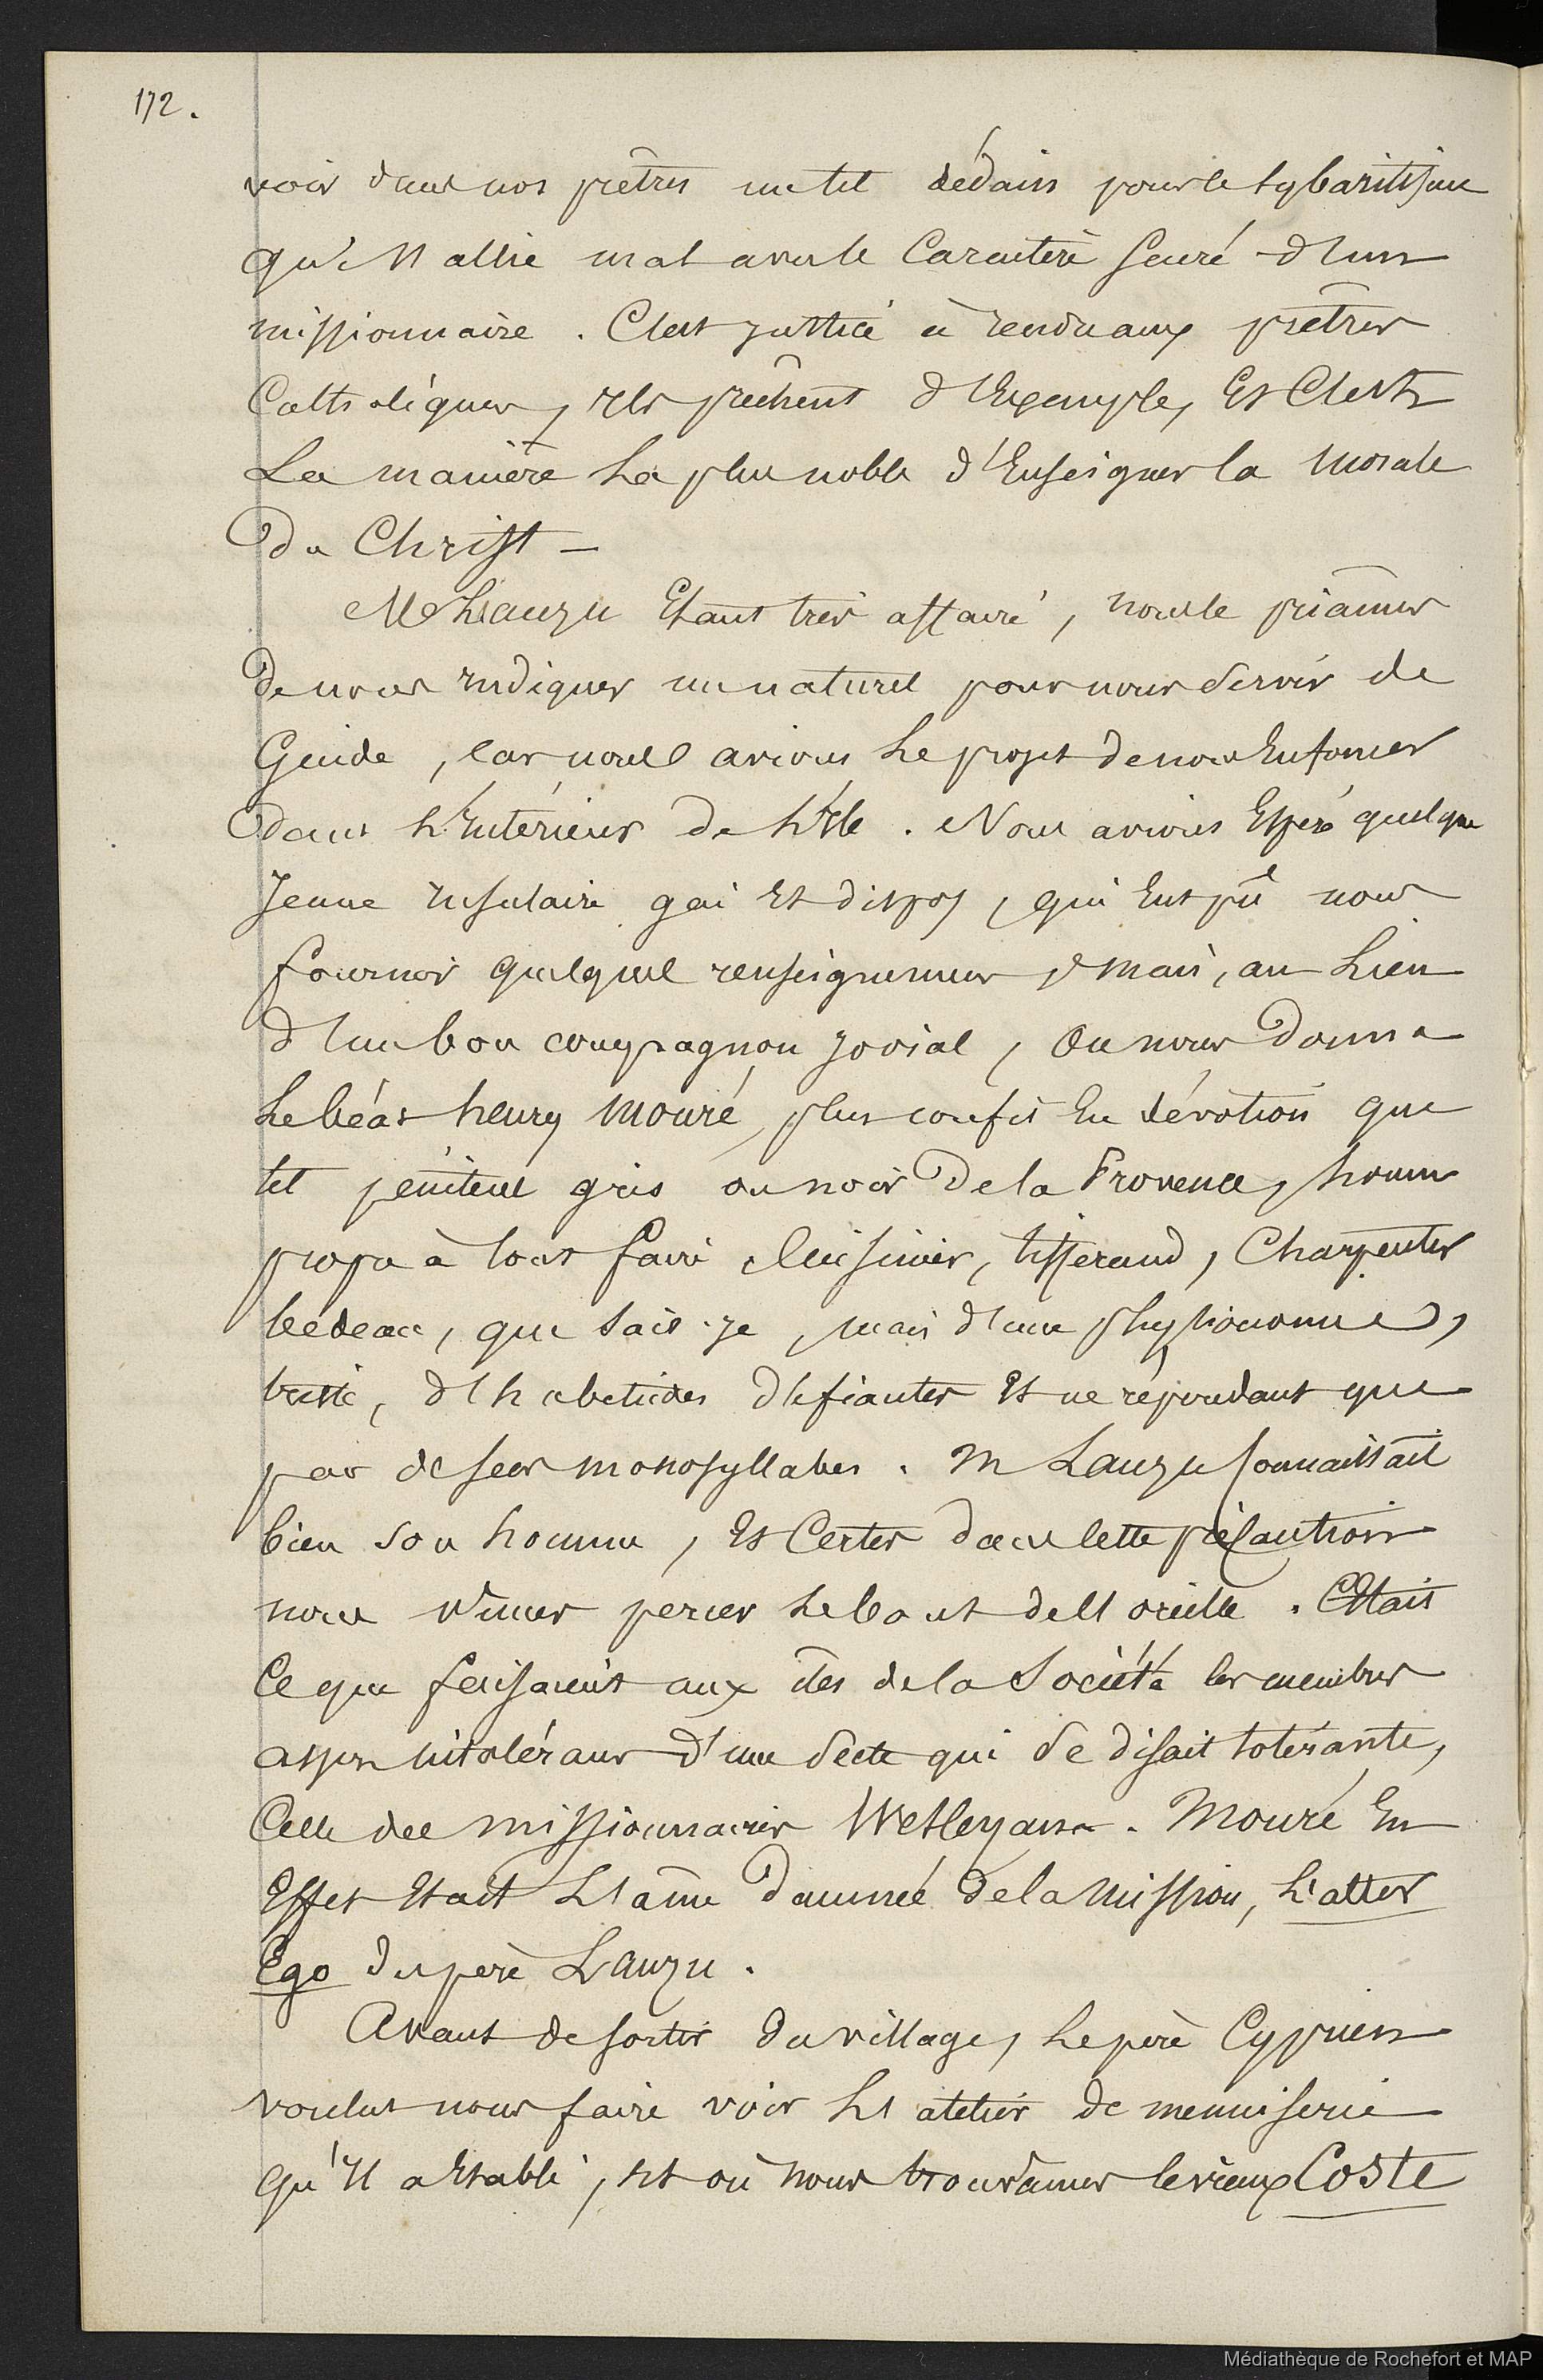 172.
voir dans nos prêtres un tel dédain pour le sybaritisme
qui s'allie mal avec le Caractère sacré d'un
missionnaire. C'est justice à rendre aux prêtres
Catholiques, ils prêchent d'Exemple, Et C'est
La manière la plus noble d'Enseigner la Morale
du Christ —
M Lauzu Etant très affairé, nous le priâmes
de nous indiquer un naturel pour nous servir de
Guide, car nous avions le projet de nous Enfoncer
dans l'Intérieur de l'Ile. Nous avions Espéré quelque
Jeune insulaire gai Et dispos, qui Eut pû nous
fournir quelques renseignemens, mais, au Lieu
d'un bon compagnon jovial, On nous donna
Le béat henry Mouré, plus confit En dévotion que
tel pénitent gris ou noir De la Provence, homme
propre à tout faire Cuisinier, tisserand, Charpentier
bedeau, que sais-je, mais d'une physionomie,
triste, d'habitudes défiantes Et ne répondant que
par de secs monosyllabes. M Lauzu Connaissait
bien son homme, Et Certes dans cette précaution
nous vîmes percer le bout de l'oreille. C'Etait
Ce que faisaient aux îles de la Société les membres
assez intolérans d'une secte qui se disait tolérante,
Celle des missionnaires Wesleyans. Mouré En
Effet Etait L'âme damnée de la Mission, L'alter
Ego du père Lauzu.
Avant de sortir du village, Le père Cyprien
voulut nous faire voir L'atelier de menuiserie
qu'Il a Etabli, Et où nous trouvâmes le vieux Coste
Médiathèque de Rochefort et MAP